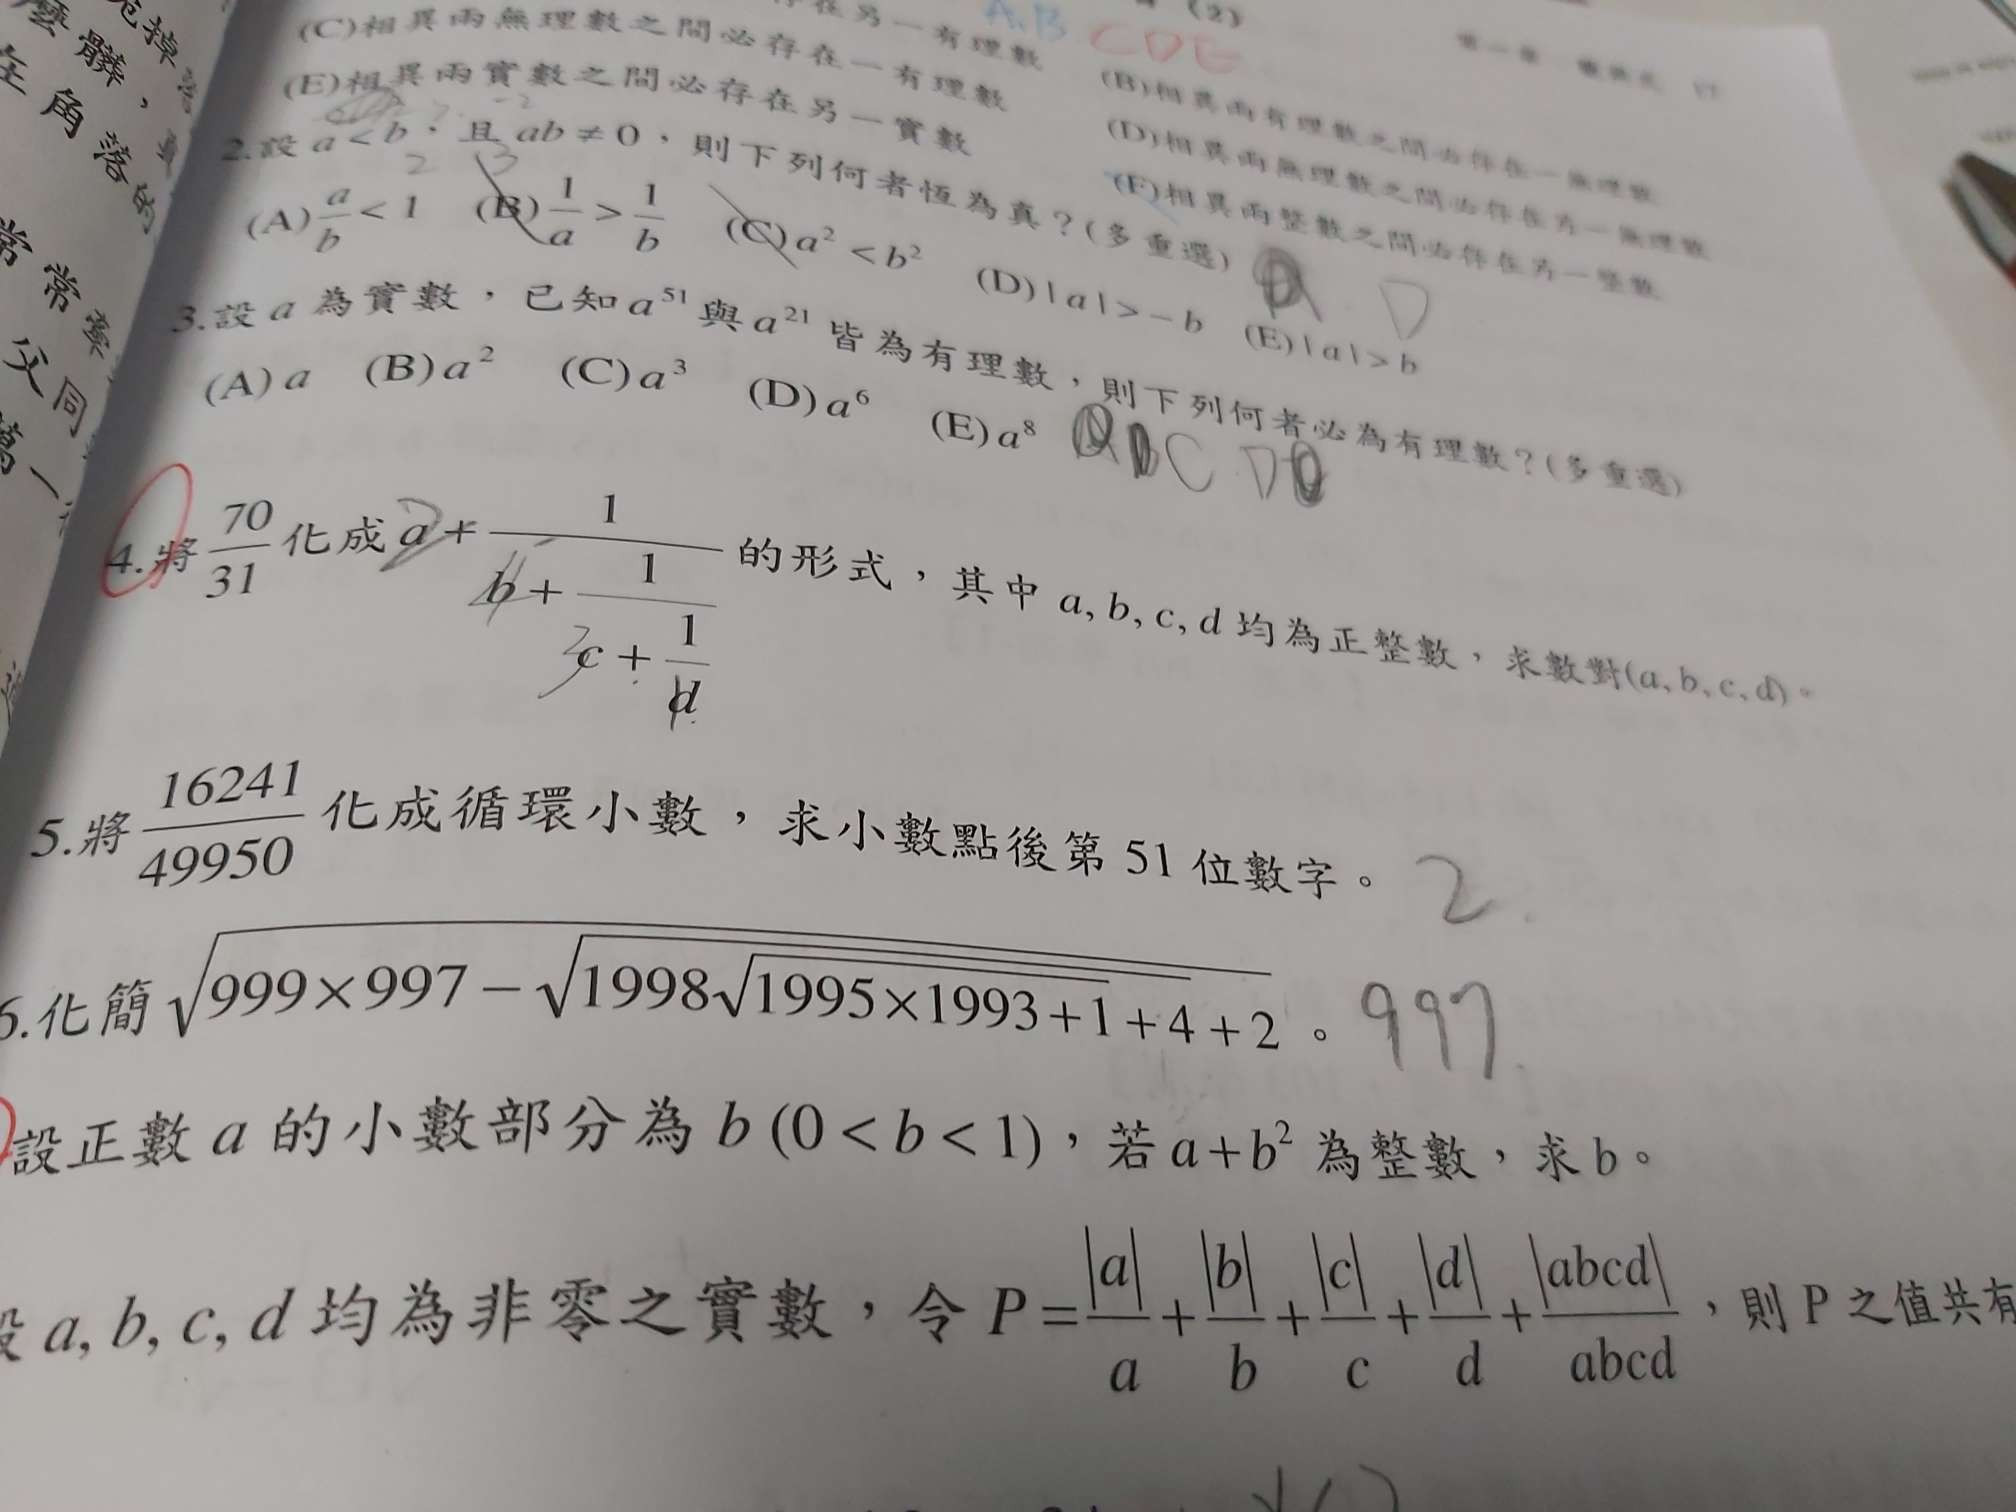 (2)
A.B CDE
(C)相異兩無理數之間必存在一有理數
(B)相異兩有理數之間必存在一無理數
(E)相異兩實數之間必存在另一實數
(D)相異兩無理數之間必存在另一無理數
(F)相異兩整數之間必存在另一整數
2.設 a < b，且 ab ≠ 0，則下列何者恆為真？(多重選)
(A) a/b < 1 (B) 1/a > 1/b (C) a² < b² (D) |a| > −b (E) |a| > b
D
3.設 a 為實數，已知 a⁵¹ 與 a²¹ 皆為有理數，則下列何者必為有理數？(多重選)
(A) a (B) a² (C) a³ (D) a⁶ (E) a⁸
C D
4.將 70/31 化成 a + 1/(b + 1/(c + 1/d)) 的形式，其中 a, b, c, d 均為正整數，求數對(a, b, c, d)。
5.將 16241/49950 化成循環小數，求小數點後第 51 位數字。 2
6.化簡 √(999×997 − √(1998√(1995×1993+1)+4)+2)。 997
設正數 a 的小數部分為 b (0 < b < 1)，若 a + b² 為整數，求 b。
設 a, b, c, d 均為非零之實數，令 P = |a|/a + |b|/b + |c|/c + |d|/d + |abcd|/abcd，則 P 之值共有